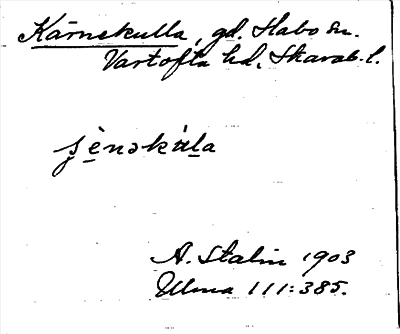 Kärnekulla, gd. Habo sn.
Vartofta hd, Skarab. l.
A. Stalin 1903
Ulma 111:385.